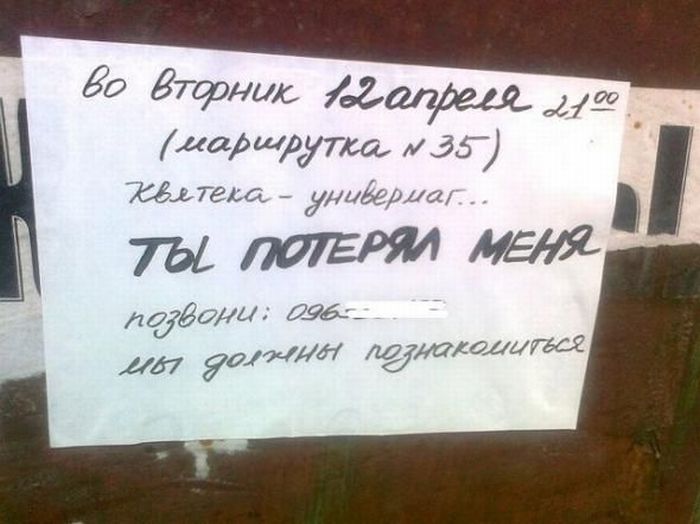 во вторник 12 апреля 21 00
(маршрутка N 35)
Квятека - универмаг...
ТЫ ПОТЕРЯЛ МЕНЯ
позвони: 096
мы должны познакомиться